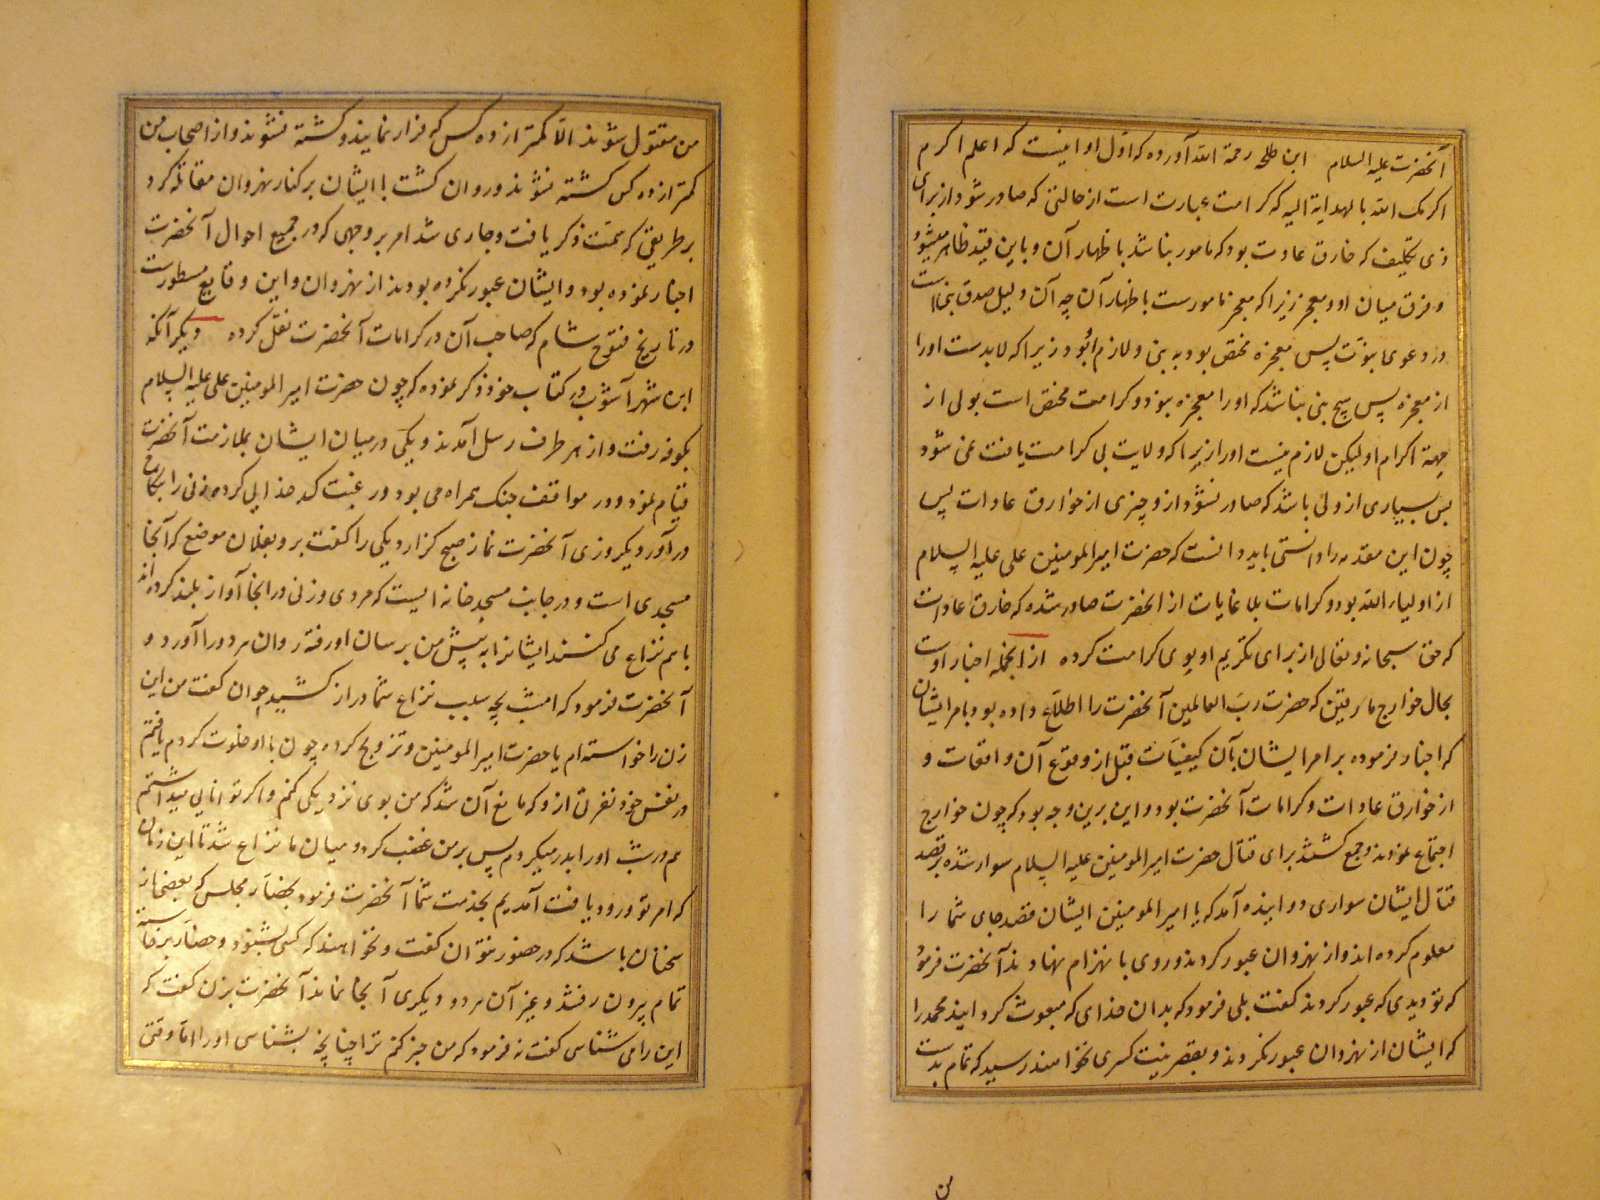 آنحضرت علیه السلام ابن طلحه رحمة الله آورده که اول او اینست که اعلم اکرم
اکرمک الله بالهدایة الیه که کرامت عبارت است از حالتی که صادر شود از برای
ذی تکلیف که خارق عادت بود که مامور نباشد باظهار آن و باین قید ظاهر میشود
و فرق میان او و معجز زیرا که معجز مامورست باظهار آن چه آن دلیل صدق نبی است
در دعوی نبوت پس معجزه مختص بود به نبی و لازم او بود زیرا که لابدست او را
از معجزه پس هیچ نبی نباشد که او را معجزه نبود و کرامت مختص است بولی از
جهة اکرام او لیکن لازم نیست او را زیرا که ولایت بی کرامت یافت می شود
بس بسیاری از ولی باشد که صادر نشود ازو چیزی از خوارق عادات پس
چون این مقدمه را دانستی باید دانست که حضرت امیر المومنین علی علیه السلام
از اولیاء الله بود و کرامات بلا غایات از انحضرت صادر شده که خارق عادات
که حق سبحانه و تعالی از برای تکریم او بوی کرامت کرده از انجمله اخبار اوست
بحال خوارج مارقین که حضرت رب العالمین آنحضرت را اطلاع داده بود بامر ایشان
که اخبار فرموده بر امر ایشان بآن کیفیات قبل از وقوع آن واقعات و
از خوارق عادات و کرامات آنحضرت بود و این برین وجه بود که چون خوارج
اجتماع نمودند و جمع گشتند برای قتال حضرت امیر المومنین علیه السلام سوار شده بقصد
قتال ایشان سواری دوانیده آمد که یا امیر المومنین ایشان قصد جای شما را
معلوم کرده اند و از نهروان عبور کردند و روی بانهزام نهادند آنحضرت فرمود
که تو دیدی که عبور کردند گفت بلی فرمود که بدان خدای که مبعوث گردانید محمد را
که ایشان از نهروان عبور نکردند و بقصر بنت کسری نخواهند رسید که تمام بدست
من
من مقتول شوند الا کمتر از ده کس که فرار نمایند و کشته نشوند و از اصحاب من
کمتر از ده کس کشته نشوند و روان گشت با ایشان بر کنار نهروان مقاتله کرد
بر طریقی که سمت ذکر یافت و جاری شد امر بر وجهی که در جمیع احوال آنحضرت
اخبار نموده بود و ایشان عبور نکرده بودند از نهروان و این وقایع مسطورست
در تاریخ فتوح شام که صاحب آن در کرامات آنحضرت نقل کرده دیگر آنکه
ابن شهرآشوب در کتاب خود ذکر نموده که چون حضرت امیر المومنین علی علیه السلام
بکوفه رفت و از هر طرف رسل آمدند و یکی در میان ایشان بملازمت آنحضرت
قیام نمود و در مواقف جنک همراه می بود و رغبت کدخدایی کرده زنی را بنکاح
در آورد یکروزی آنحضرت نماز صبح گزارد یکی را گفت برو بفلان موضع که آنجا
مسجدی است و در جانب مسجد خانه ایست که مردی و زنی در انجا آواز بلند کرده اند
باهم نزاع می کنند ایشانرا به پیش من برسان او رفته روان هر دو را آورد و
آنحضرت فرمود که امشب بچه سبب نزاع شما دراز کشید جوان گفت من این
زن را خواسته ام یا حضرت امیر المومنین و تزویج کرده چون با او خلوت کردم یافتم
در نفس خود نفرتی ازو که مانع آن شد که من بوی نزدیکی کنم و اکر توانایی میداشتم
هم در شب او را بدر میکردم پس بر من غضب کرد و میان ما نزاع شد تا این زمان
که امر تو ورود یافت آمدیم بخدمت شما آنحضرت فرمود بحضار مجلس که بعضی از
سخنان باشد که در حضور نتوان گفت و نخواهند که کسی بشنود و حضار برخاسته
تمام بیرون رفتند و غیر آن هر دو دیگری آنجا نماند آنحضرت بزن گفت که
این را می شناسی گفت نه فرمود که من خبر کنم ترا چنانچه بشناسی او را اما وقتی